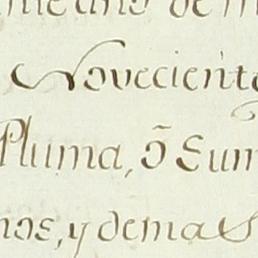 de
Novecient
Pluma, õ Sum
nos, y demas